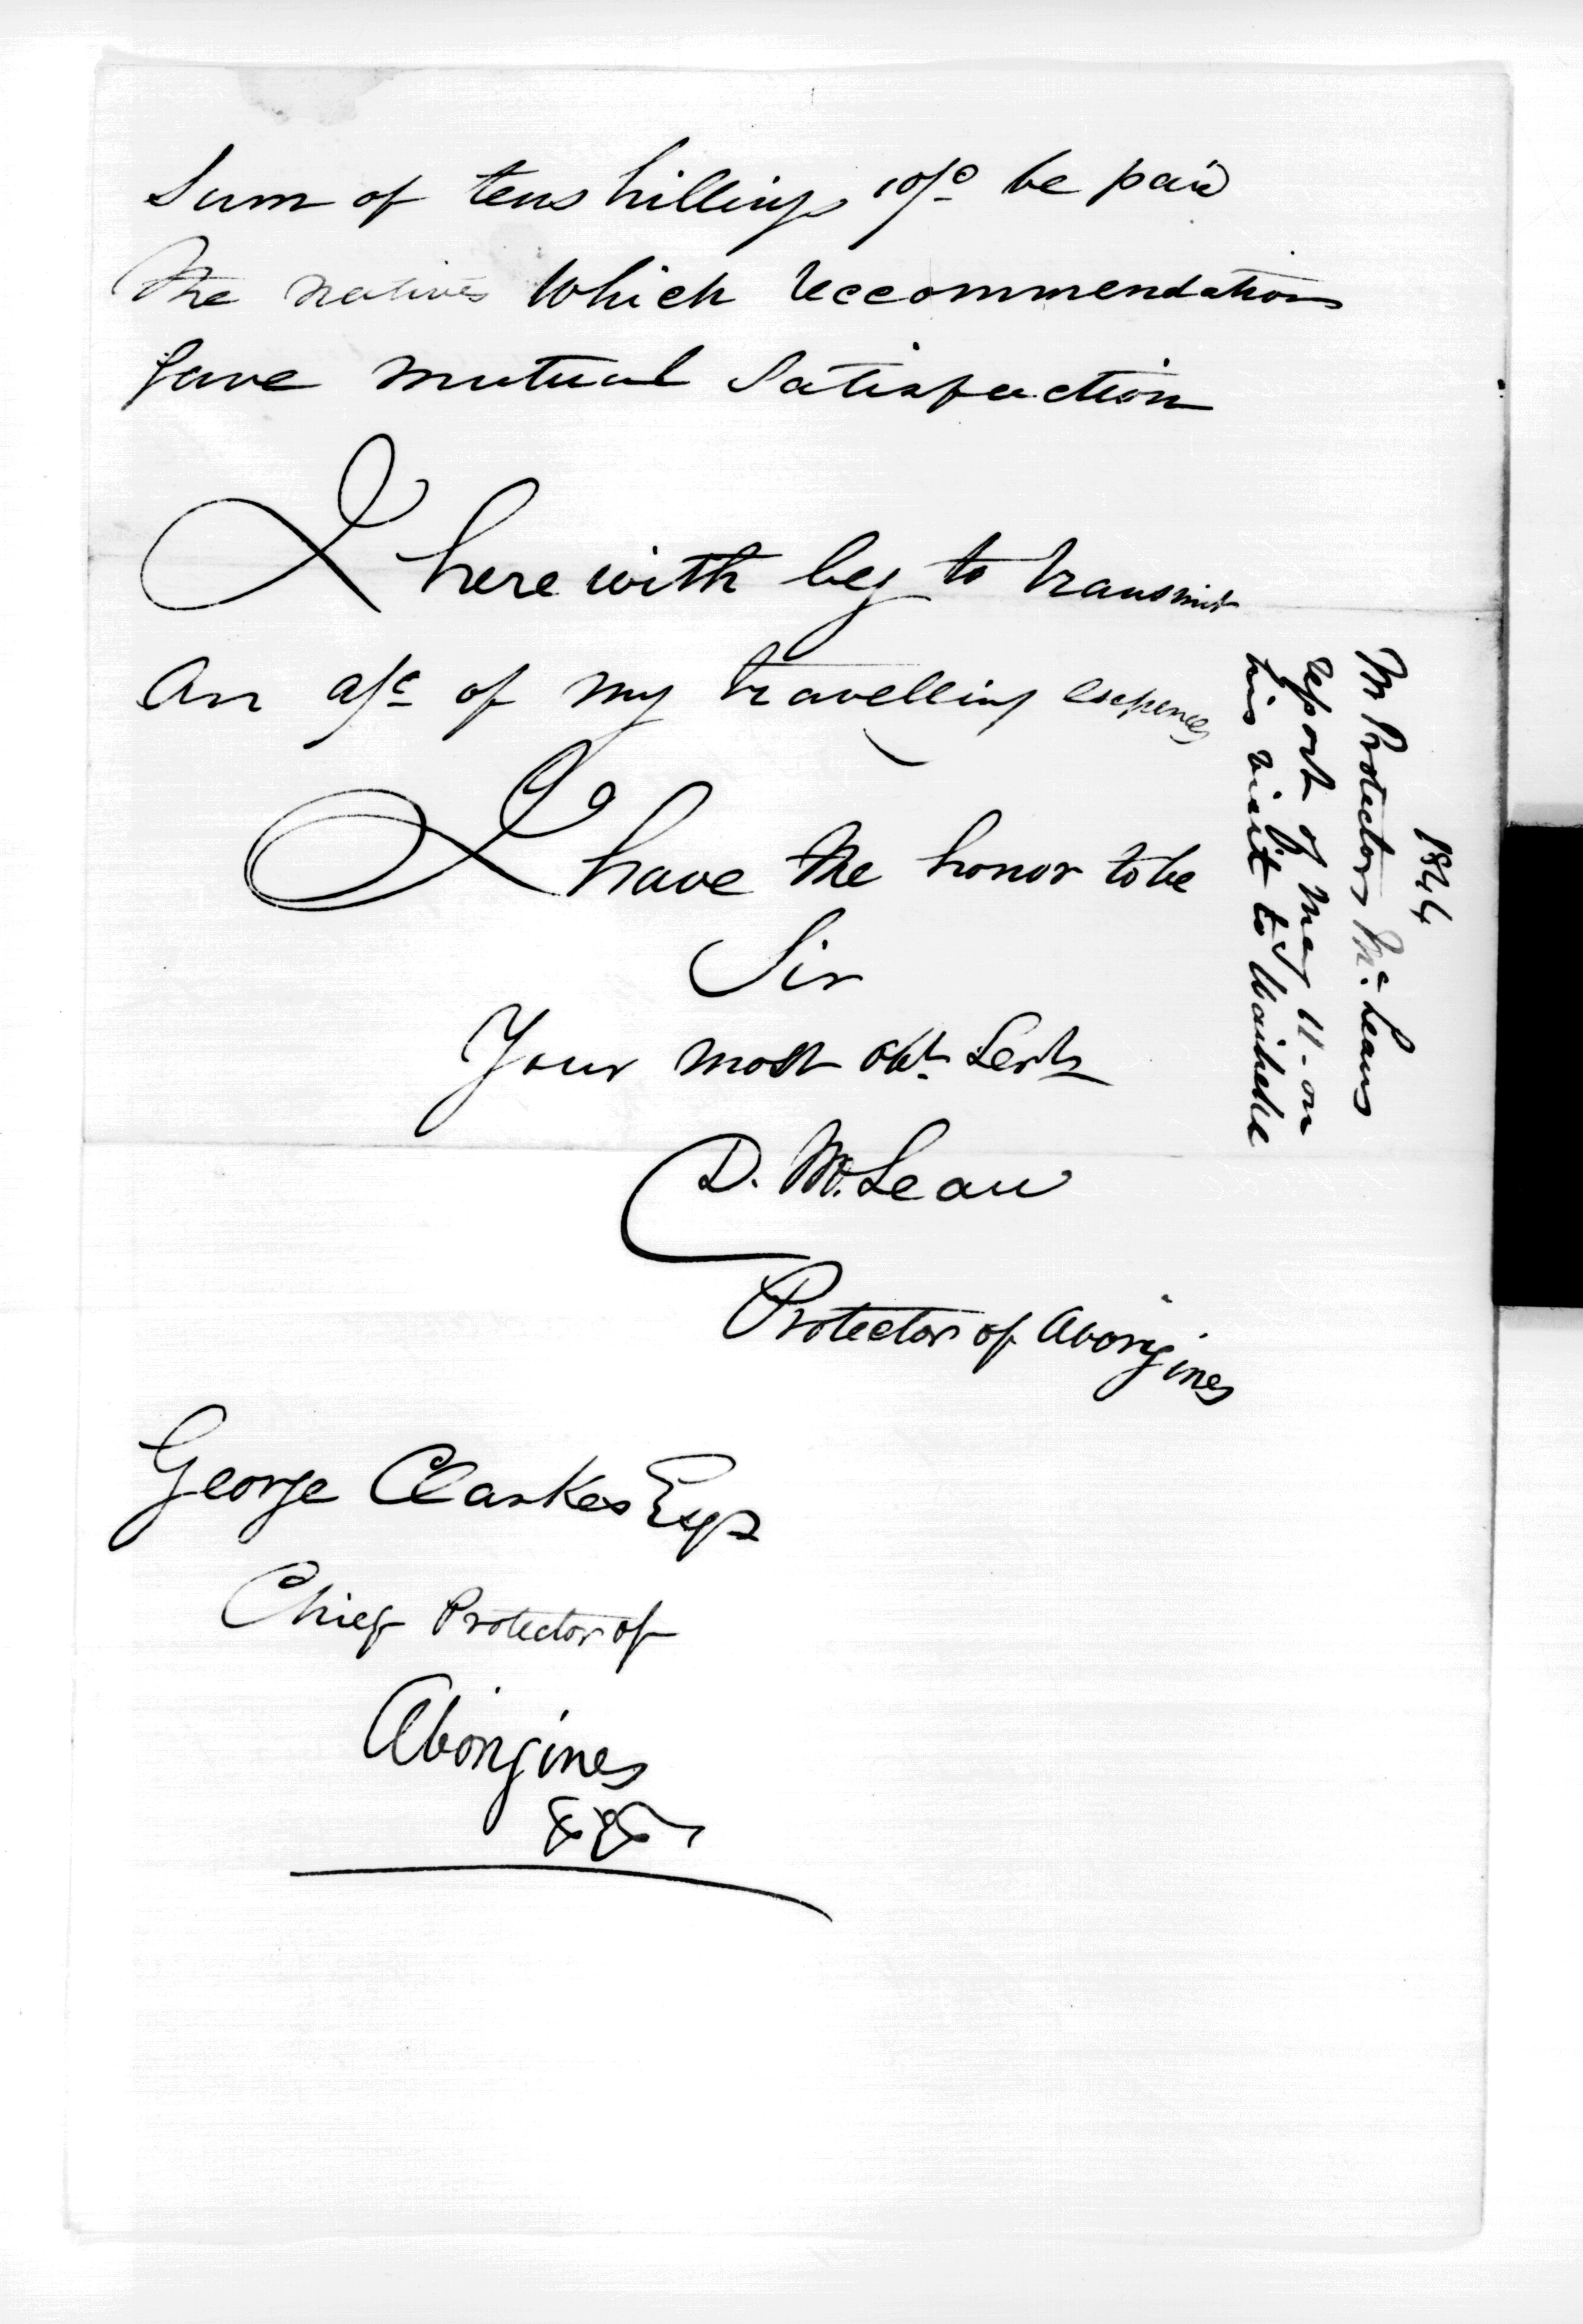 Sum of ten shillings 10/0 be paid
the natives which reccommendation
gave mutual satisfaction
I herewith beg to transmit
An a/c of my travelling expences
I have the honor to be
Sir
Your most obt. Servt
D. McLean
Protector of Aborigines
George Clarke Esqr
Chief Protector of
Aborigines
&&&
1844
Mr Protector McLeans
report of May 11 - on
his visit to